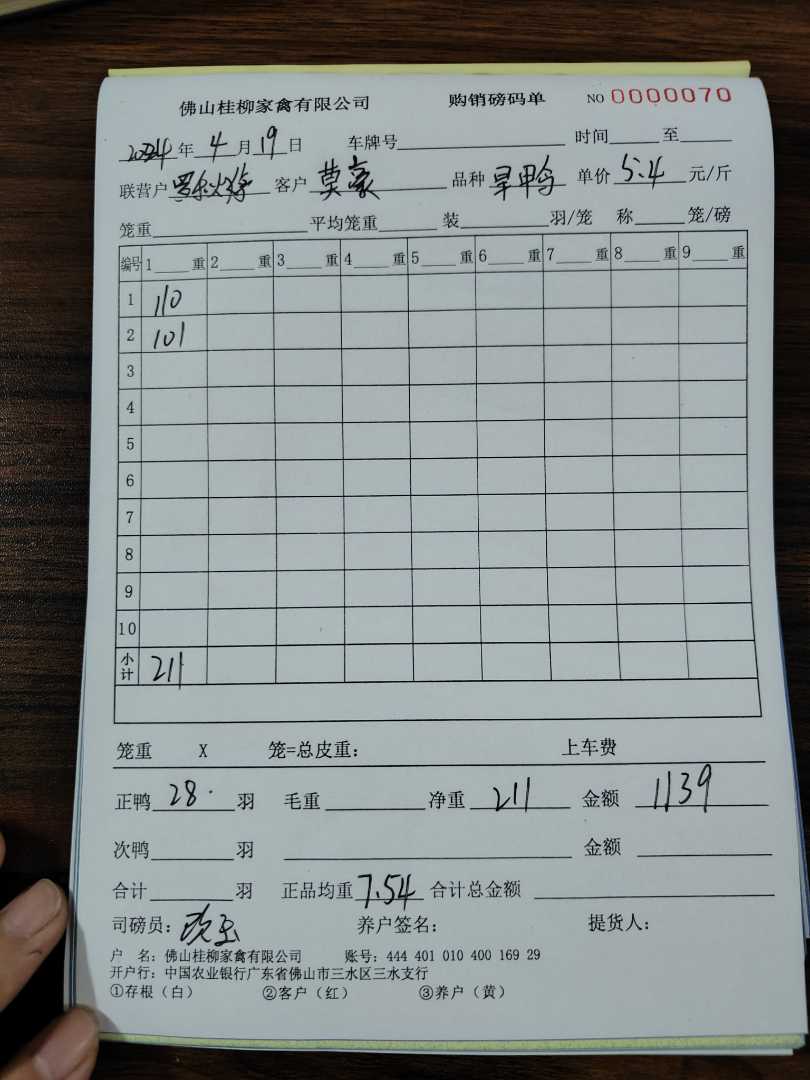 佛山桂柳家禽有限公司 购销磅码单 NO 0000070
2024年 4 月 19 日 车牌号 时间 至
联营户 客户 莫豪 品种 旱鸭 单价 5.4 元/斤
笼重 平均笼重 装 羽/笼 称 笼/磅
编号 1 重 2 重 3 重 4 重 5 重 6 重 7 重 8 重 9 重
1 110
2 101
3
4
5
6
7
8
9
10
小计 211
笼重 X 笼=总皮重: 上车费
正鸭 28. 羽 毛重 净重 211 金额 1139
次鸭 羽 金额
合计 羽 正品均重 7.54 合计总金额
司磅员: 养户签名: 提货人:
户 名: 佛山桂柳家禽有限公司 账号: 444 401 010 400 169 29
开户行: 中国农业银行广东省佛山市三水区三水支行
①存根（白） ②客户（红） ③养户（黄）